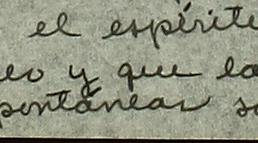 el espírite
eo y que la
pontánear so